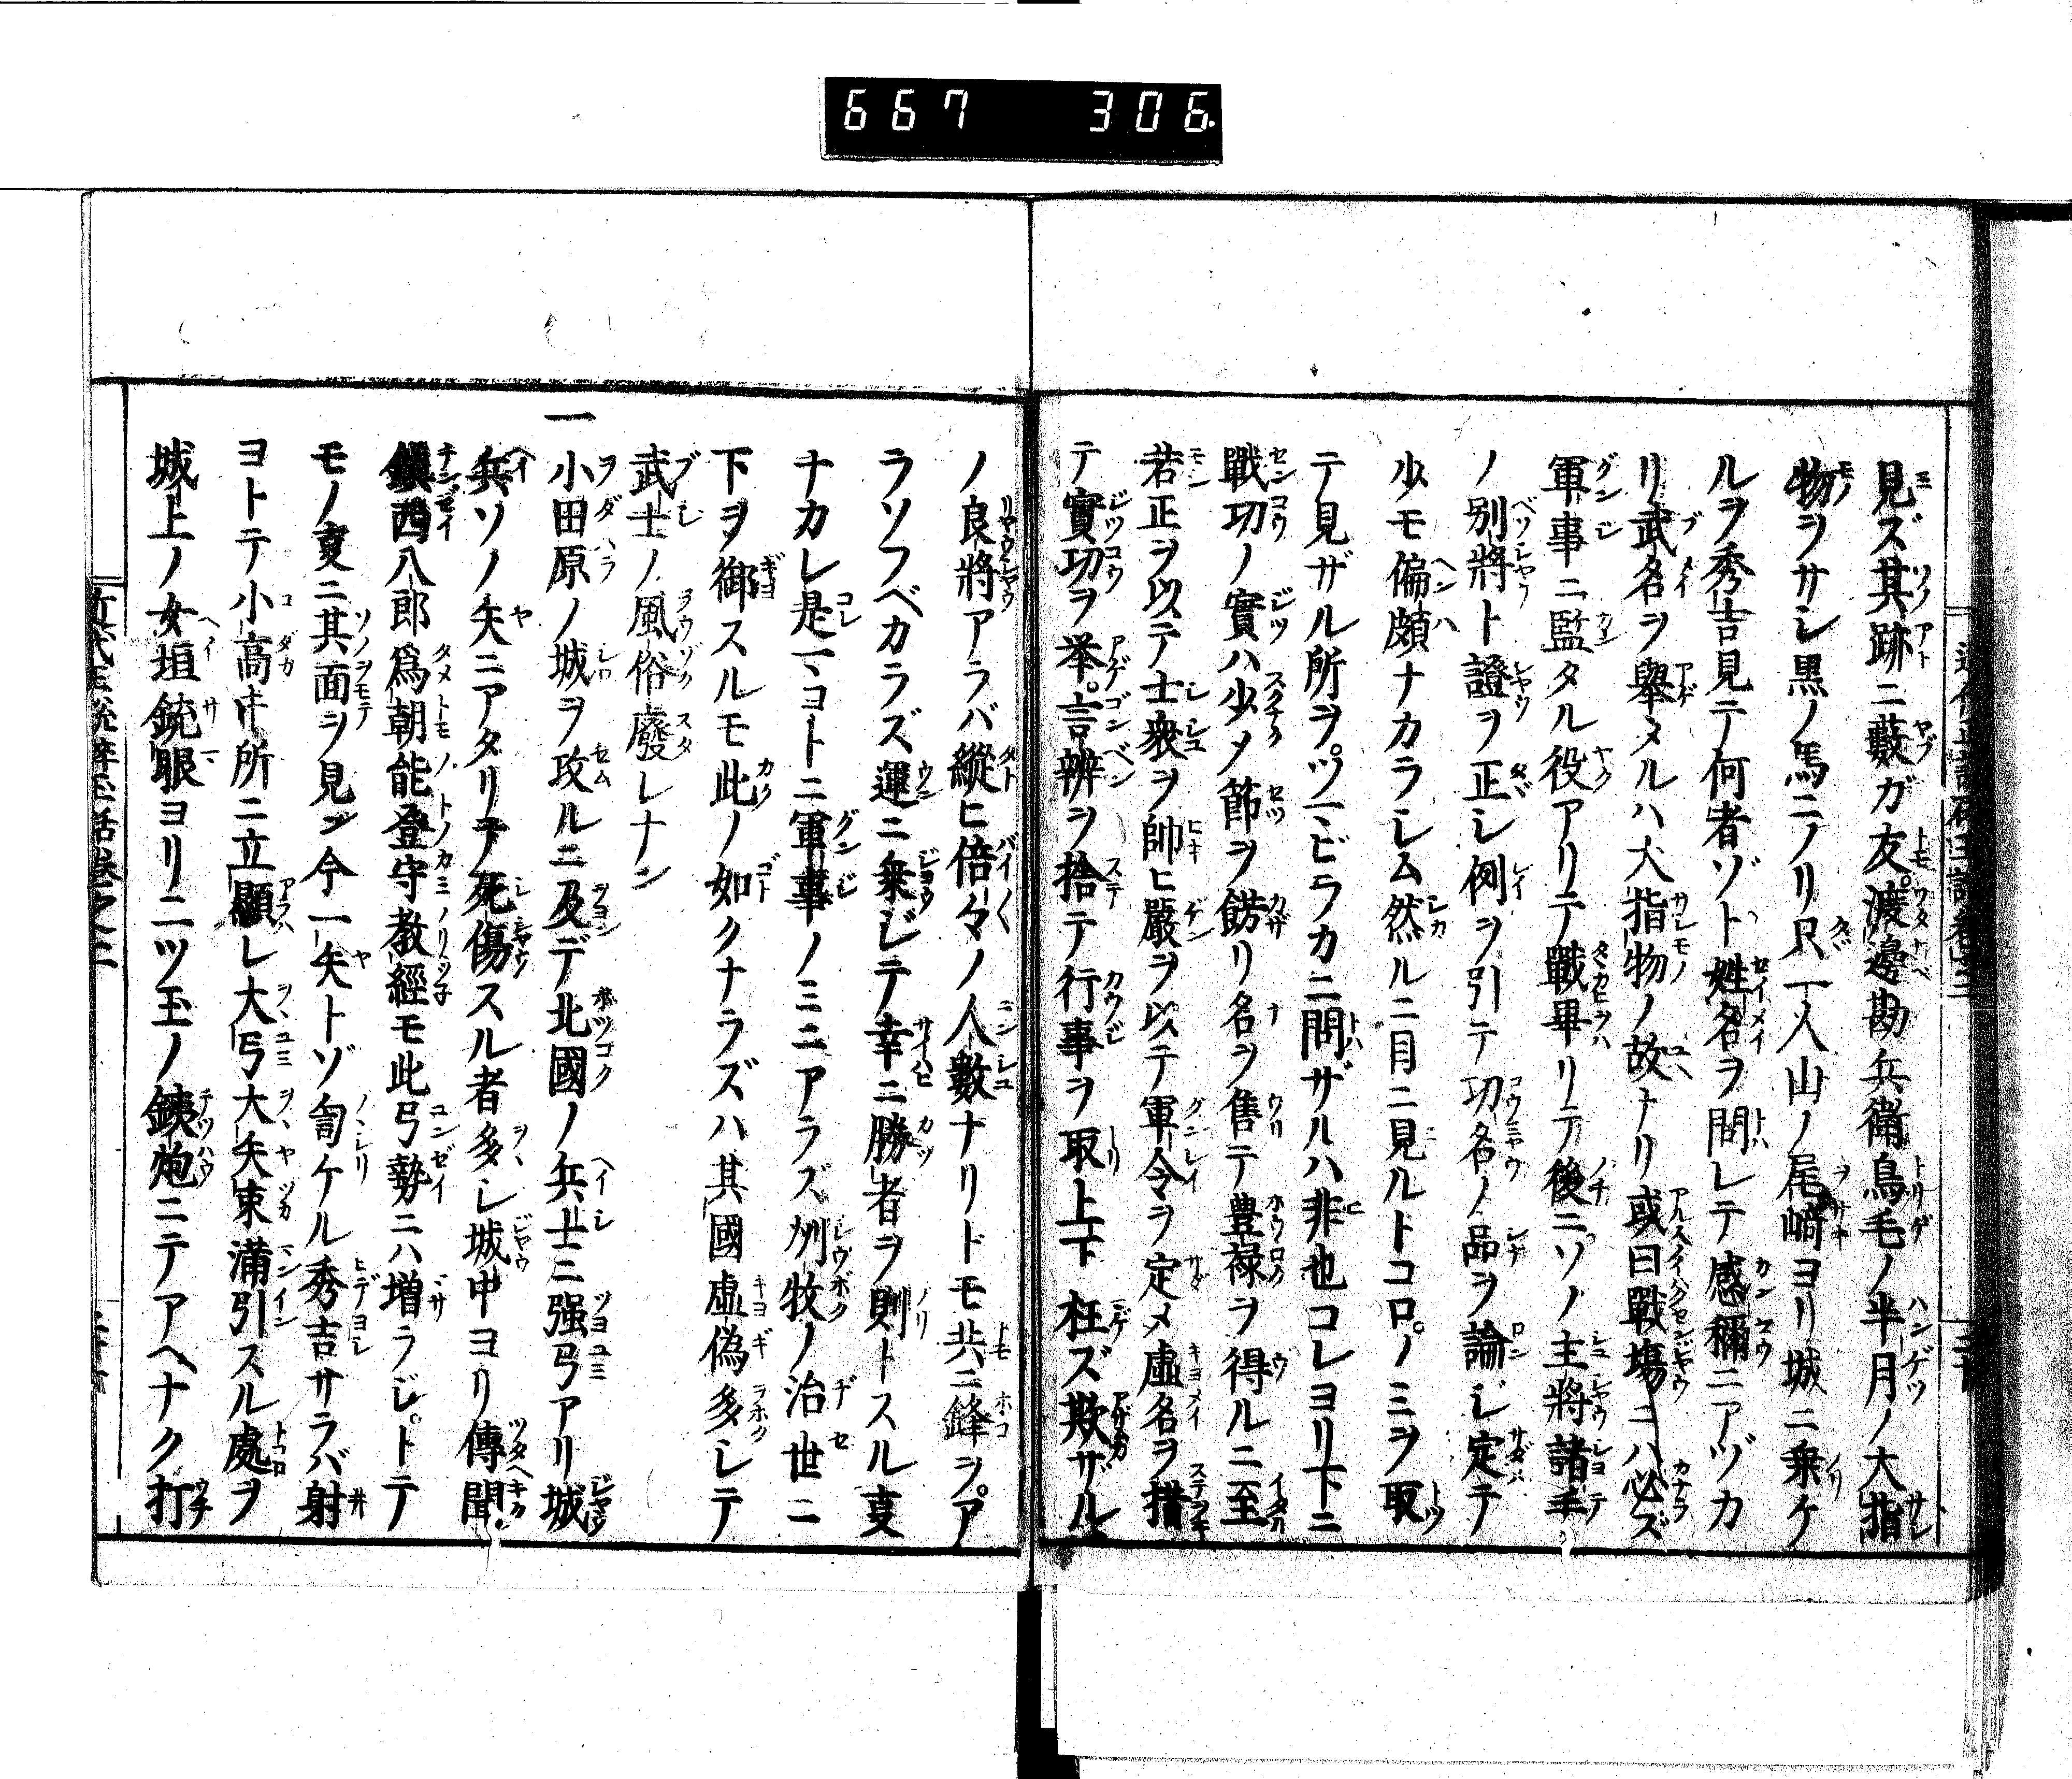 667 306
見ズ其跡ニ藪ガ友渡邉勘兵衛鳥毛ノ半月ノ大指
物ヲサシ黒ノ馬ニノリ只一人山ノ尾﨑ヨリ城ニ乗ケ
ルヲ秀吉見テ何者ゾト姓名ヲ問レテ感稱ニアヅカ
リ武名ヲ舉タルハ大指物ノ故ナリ或曰戰場ニハ必ズ
軍事ニ監タル役アリテ戰畢リテ後ニソノ主將諸手
ノ別將ト證ヲ正シ例ヲ引テ功名ノ品ヲ論ジ定テ
少モ偏頗ナカラシム然ルニ目ニ見ルトコロノミヲ取
テ見ザル所ヲツマビラカニ問ザルハ非也コレヨリ下ニ
戰功ノ實ハ少メ節ヲ餝リ名ヲ售テ豊禄ヲ得ルニ至
若正ヲ以テ士衆ヲ帥ヒ嚴ヲ以テ軍令ヲ定メ虚名ヲ措
テ實功ヲ挙言辨ヲ捨テ行事ヲ取上下枉ズ欺ザル
ノ良將アラバ縱ヒ倍々ノ人數ナリトモ共ニ鋒ヲア
ラソフベカラズ運ニ乗ジテ幸ニ勝者ヲ則トスル叓
ナカレ是マコトニ軍事ノミニアラズ州牧ノ治世ニ
下ヲ御スルモ此ノ如クナラズハ其國虚偽多シテ
武士ノ風俗廢レナン
一小田原ノ城ヲ攻ルニ及デ北國ノ兵士ニ强弓アリ城
兵ソノ矢ニアタリテ死傷スル者多シ城中ヨリ傳聞
鎭西八郎爲朝能登守教經モ此弓勢ニハ増ラジトテ
モノ叓ニ其面ヲ見ン今一矢トゾ訇ケル秀吉サラバ射
ヨトテ小高キ所ニ立顯レ大弓大矢束滿引スル處ヲ
城上ノ女垣銃眼ヨリ二ツ玉ノ銕炮ニテアヘナク打